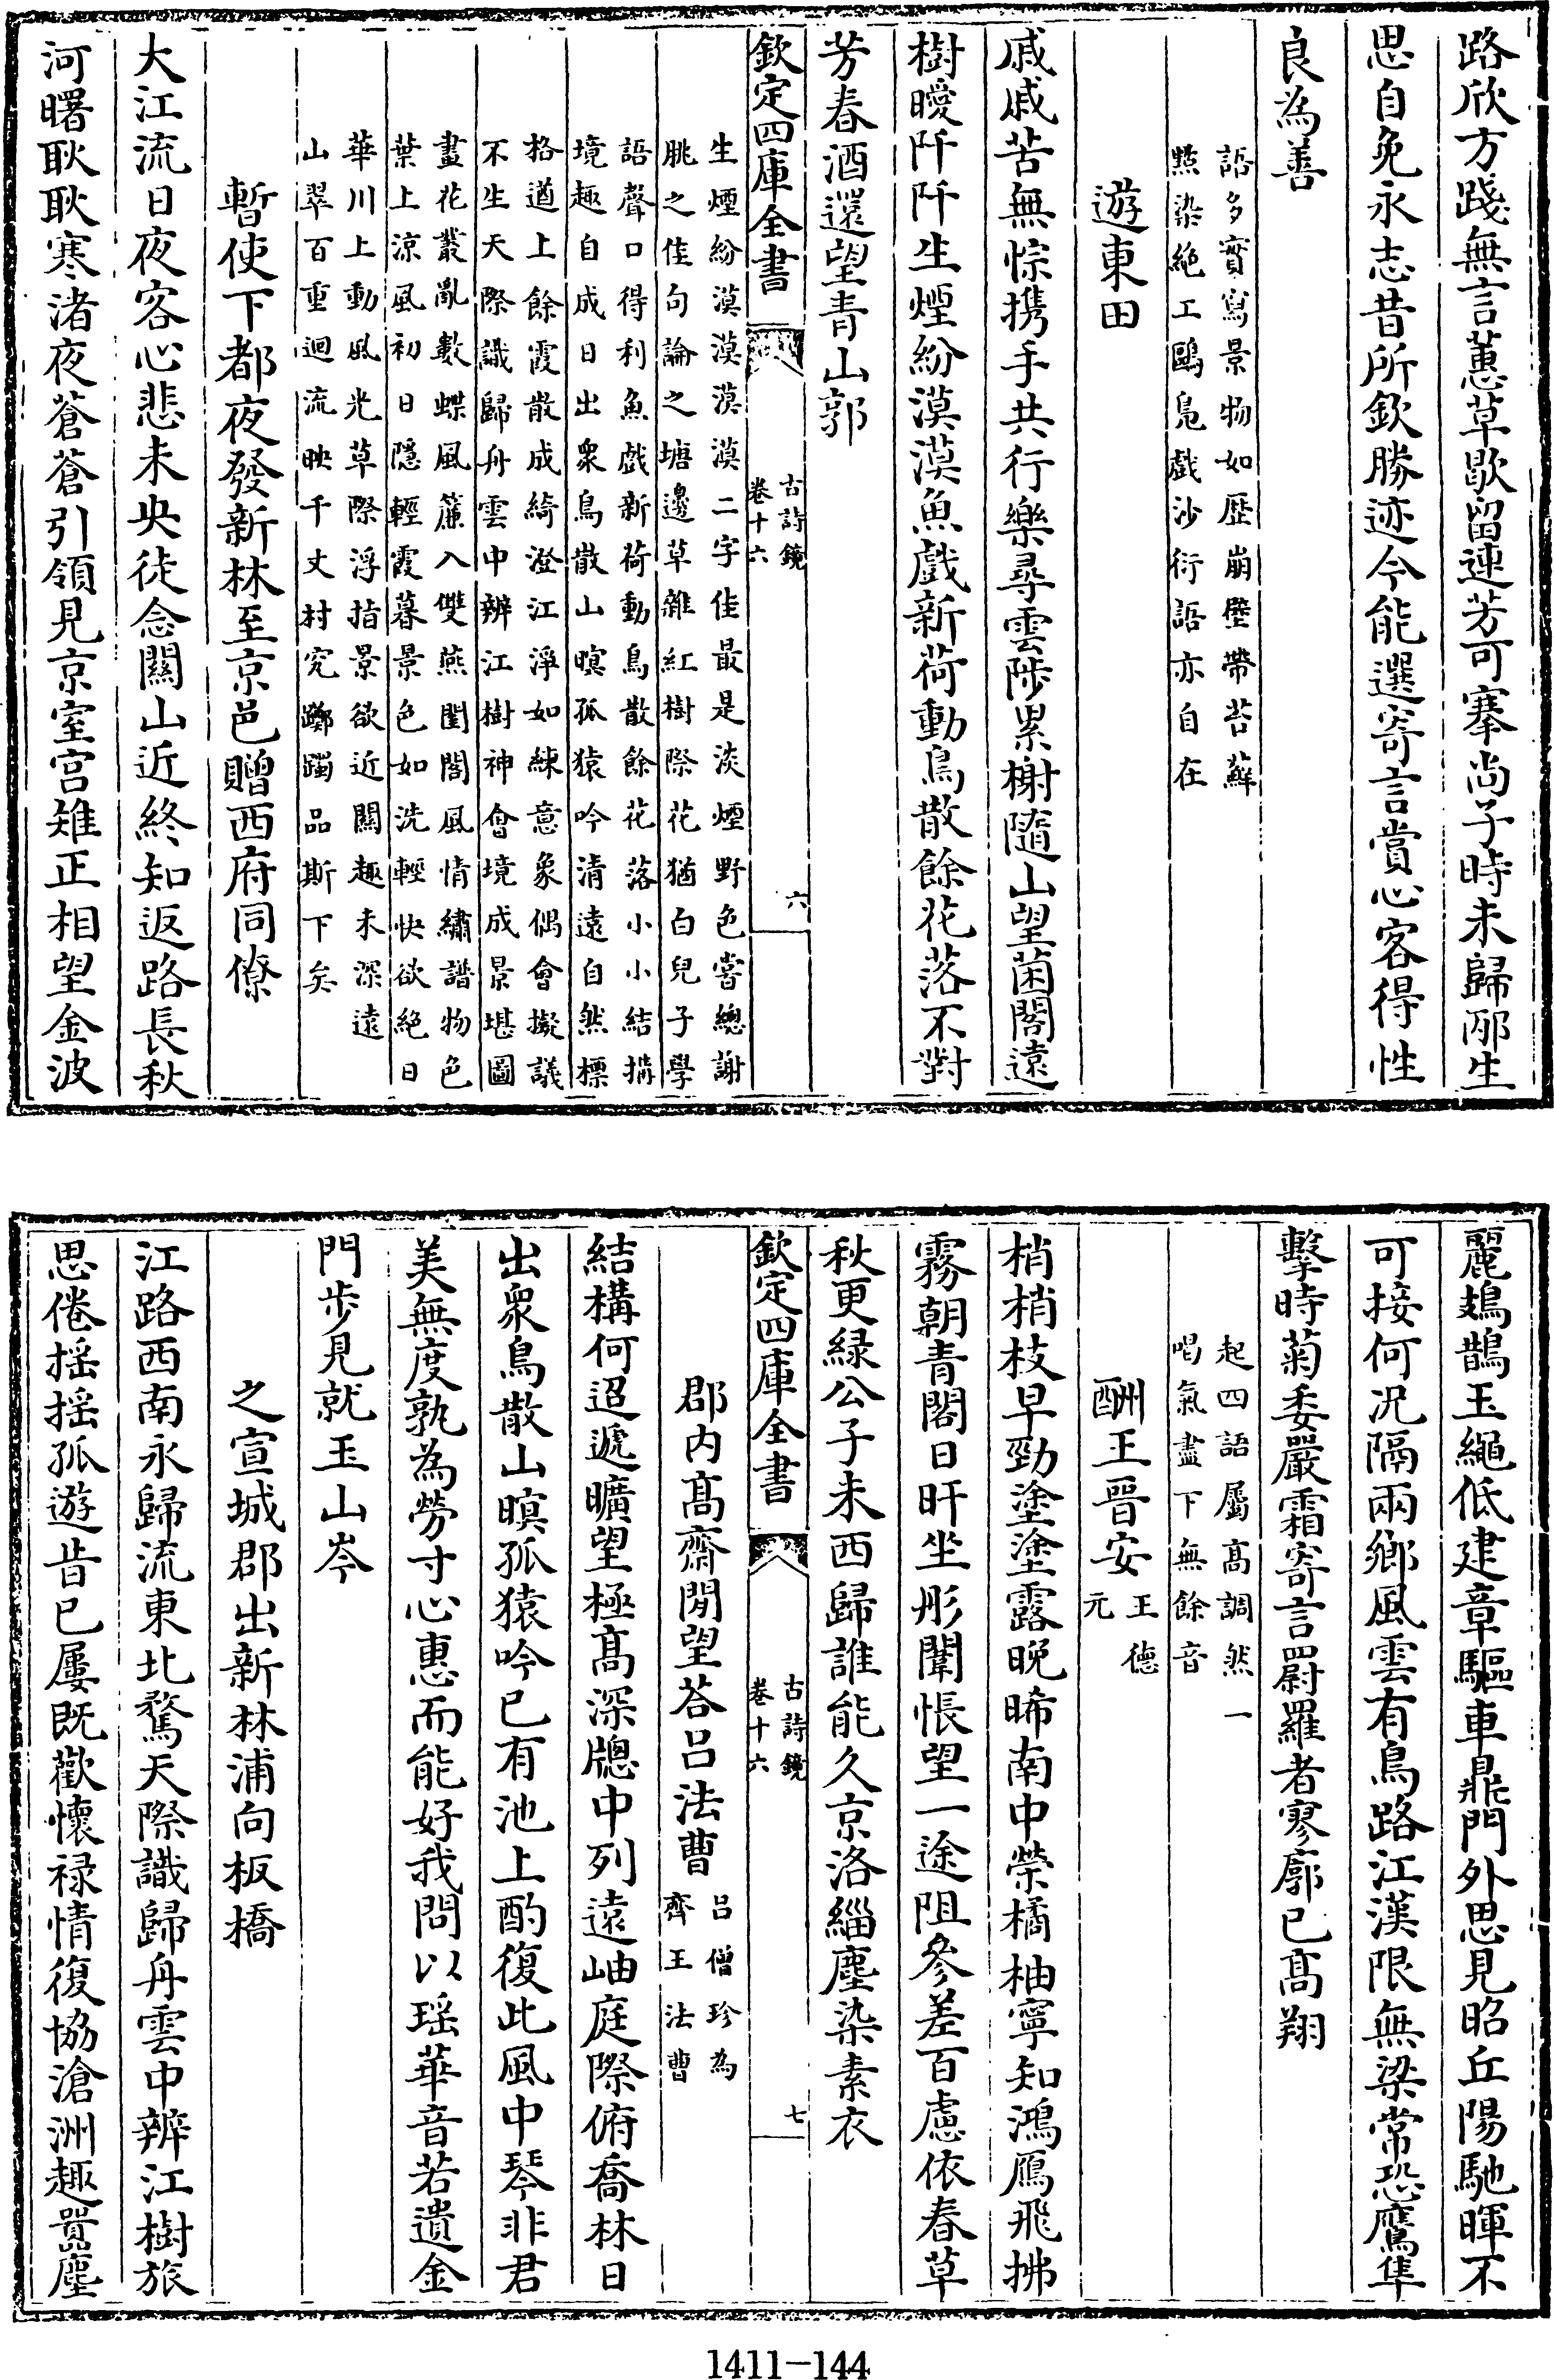 路欣方踐無言蕙草歇留連芳可搴尚子時未歸邴生
思自免永志昔所欽勝迹今能選寄言賞心客得性
良為善
語多實寫景物如歴崩壁帶苔蘚
㸃染絶工鷗鳬戲沙衍語亦自在
遊東田
戚戚苦無悰携手共行樂尋雲陟累榭隨山望菌閣遠
樹曖阡阡生煙紛漠漠魚戲新荷動鳥散餘花落不對
芳春酒還望青山郭
欽定四庫全書
古詩鏡
卷十六
六
生煙紛漠漠漠漠二字佳最是淡煙野色嘗總謝
朓之佳句論之塘邊草雜紅樹際花猶白兒子學
語聲口得利魚戲新荷動鳥散餘花落小小結搆
境趣自成日出衆鳥散山暝孤猿吟清遠自然標
格遒上餘霞散成綺澄江淨如練意象偶會擬議
不生天際識歸舟雲中辨江樹神會境成景堪圖
畫花叢亂數蝶風簾入雙燕閨閣風情繡譜物色
葉上涼風初日隱輕霞暮景色如洗輕快欲絶日
華川上動風光草際浮指景欲近闗趣未深遠
山翠百重迴流映千丈村究躑躅品斯下矣
暫使下都夜發新林至京邑贈西府同僚
大江流日夜客心悲未央徒念闗山近終知返路長秋
河曙耿耿寒渚夜蒼蒼引領見京室宫雉正相望金波
麗鳷鵲玉繩低建章驅車鼎門外思見昭丘陽馳暉不
可接何況隔兩鄉風雲有鳥路江漢限無梁常恐鷹隼
擊時菊委嚴霜寄言罻羅者寥廓已髙翔
起四語屬髙調然一
唱氣盡下無餘音
酬王晉安
王德
元
梢梢枝早勁塗塗露晚晞南中榮橘柚寧知鴻鴈飛拂
霧朝青閣日旰坐彤闈悵望一途阻參差百慮依春草
秋更緑公子未西歸誰能久京洛緇塵染素衣
欽定四庫全書
古詩鏡
卷十六
七
郡内髙齋閒望荅吕法曹
吕僧珍為
齊王法曹
結構何迢遞曠望極髙深牕中列遠岫庭際俯喬林日
出衆鳥散山暝孤猿吟已有池上酌復此風中琴非君
美無度孰為勞寸心惠而能好我問以瑶華音若遺金
門步見就玉山岑
之宣城郡出新林浦向板橋
江路西南永歸流東北騖天際識歸舟雲中辨江樹旅
思倦揺揺孤遊昔已屢既歡懷禄情復協滄洲趣囂塵
1411-144